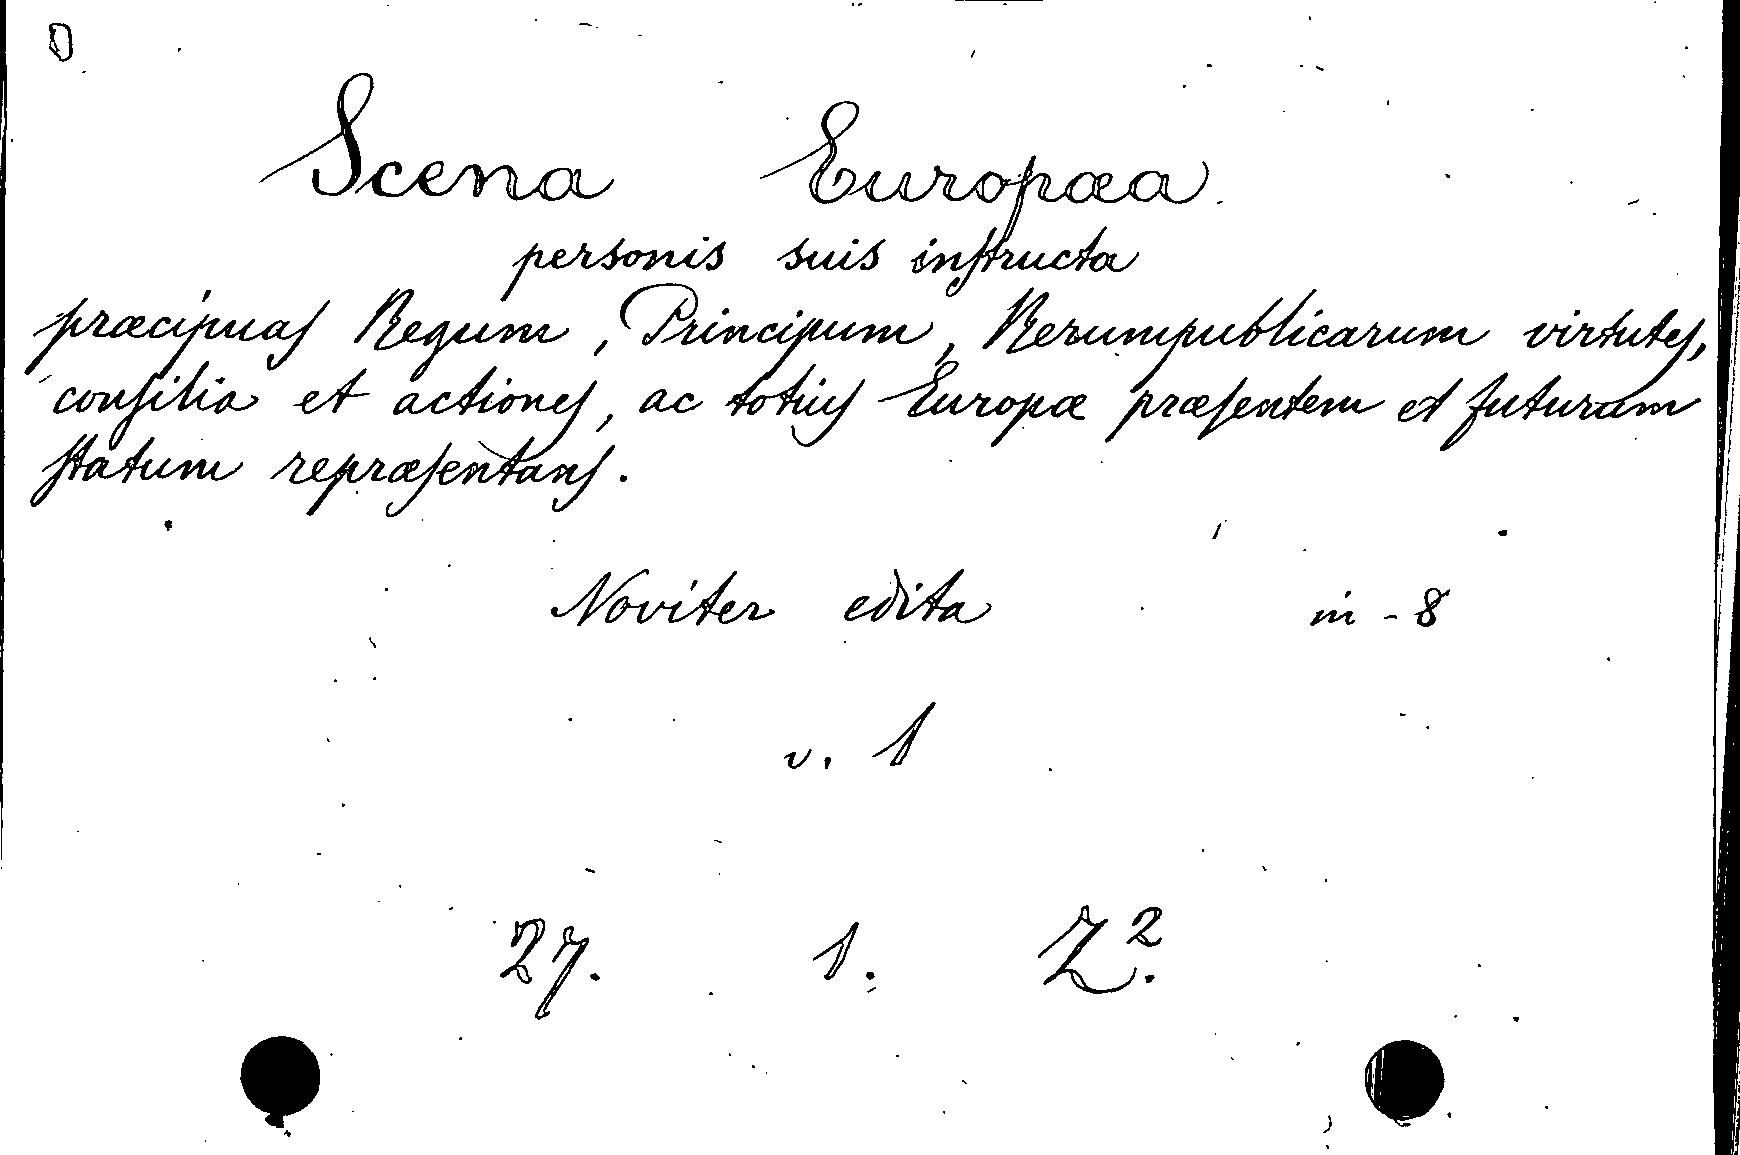 Scena Europæa
personis suis instructa
præcipuas Regum, Principum, Rerumpublicarum virtutes,
consilia et actiones, ac totius Europæ præsentem et futuram
statum repræsentans.
Noviter edita in-8
v. 1
27. 1. Z².